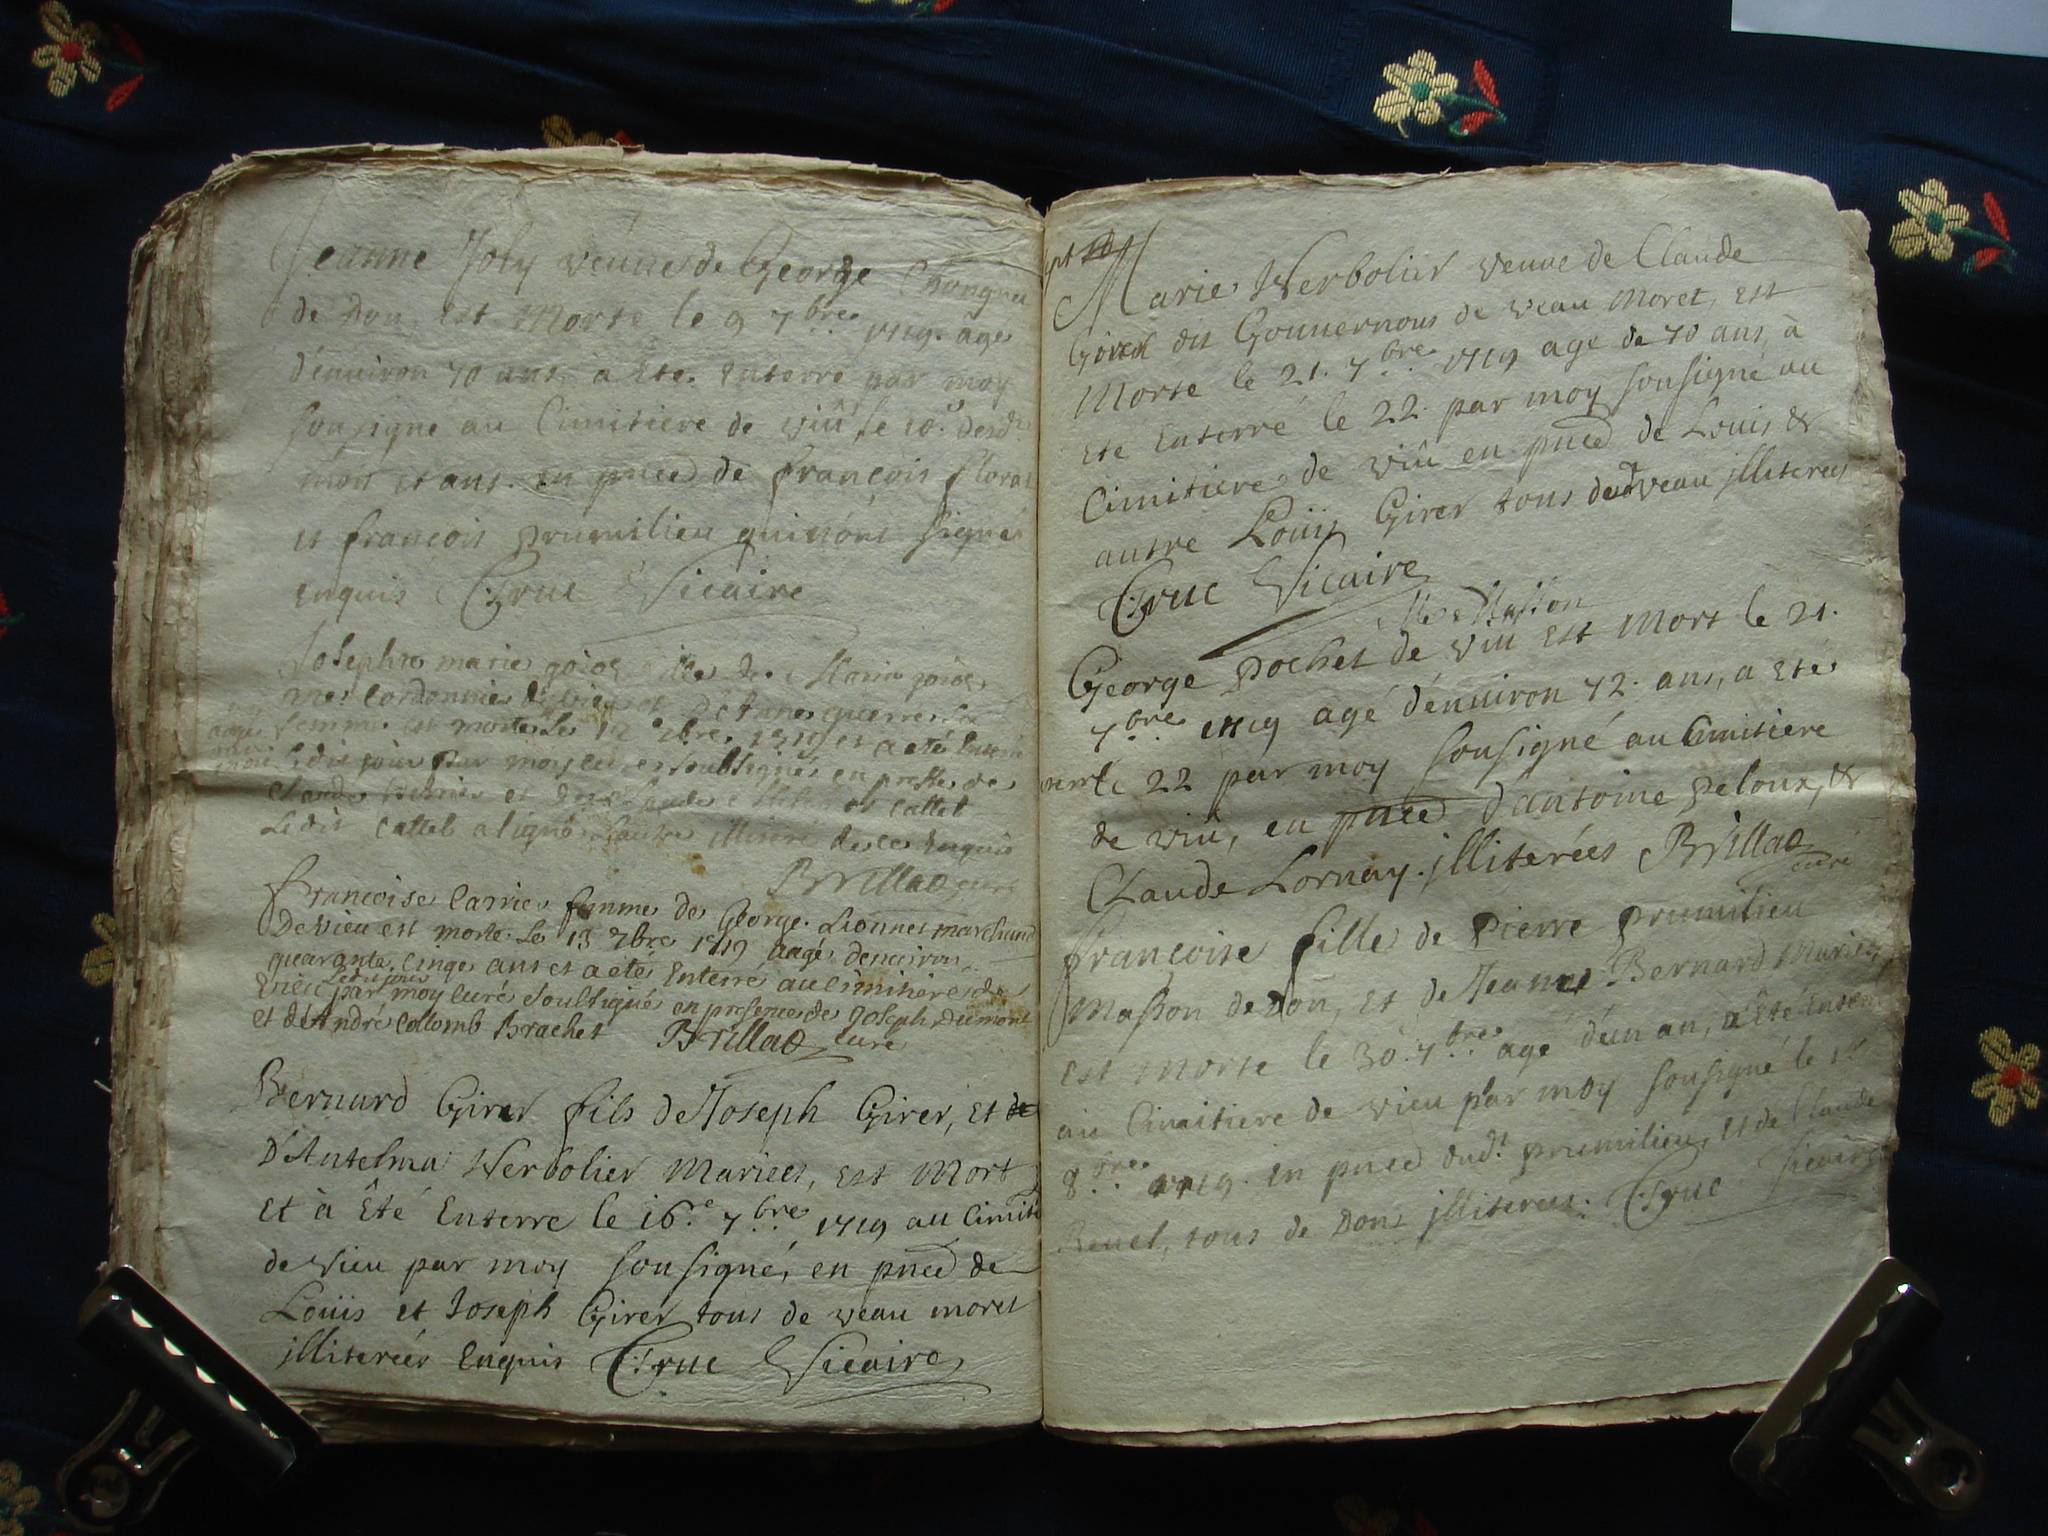 Jeanne Joly veuve de George
de Don, est Morte le 9 7bre 1719. age
d'enuiron 70 ans, à Eté. Enterré par moy
sousigné au Cimitiere de viû, le 10e. desdt.
mois et ans. en pnced de françois floras
et françois prumilieu qui n'ont signés
enquis Truc Vicaire
Josephte marie goios fille de Marin goios
me. Cordonnier de vieu et d'Anne guerre sa
femme est morte le 12 7bre. 1719 et a eté
ledit jour par moy curé soubsigné en presce de
Claude et de Claude cattet
Ledit Cattet a signé l'autre illiteré de ce enquis
Brillat curé
françoise Carrier femme de George. Lionnet marchand
De vieu est morte. Le 13 7bre 1719 aagé denuiron
quarante. cinqe ans et a eté Enterré au cimitiere de
Vieu Ledit jour par moy curé soubsigné en presence de Joseph Dumont
et de André Collomb Brachet Brillat curé
Bernard Girer fils de Joseph Girer, et de
D'Antelma Verbolier Mariees, est Mort
Et à Êté Enterre le 16.e 7bre 1719 au Cimiti
de Vieu par moy sousigné, en pnced de
Loüis et Joseph Girer tous de veau moret
illiterées Enquis Truc Vicaire
Marie Verbolier veuue de Claude
Girer dit Gouuernous de veau Moret, est
Morte le 21. 7bre 1719 age de 70 ans, à
Eté Enterré le 22. par moy sousigné au
Cimitiere de viû en pnced de Louis &
autre Loüis Girer tous dudt veau illiterées
Truc Vicaire
Me Masson
George pochet de viû est Mort le 21.
7bre 1719 agé d'enuiron 72. ans, a Eté
enterré le 22 par moy sousigné au Cimitiere
de viû, en pnced d'antoine peloux, &
Claude Lornay. illiterées Brillat
curé
françoise fille de Pierre prumilieu
Masson de Don, et de Jeanne Bernard Mariés
est Morte le 30. 7bre agé d'un an, a Été Enterré
au Cimitiere de vieu par moy sousigné le 1er
8bre 1719. en pnced dudt. prumilieu, et de Claude
Reuel, tous de Don, illiterées. Truc Vicaire